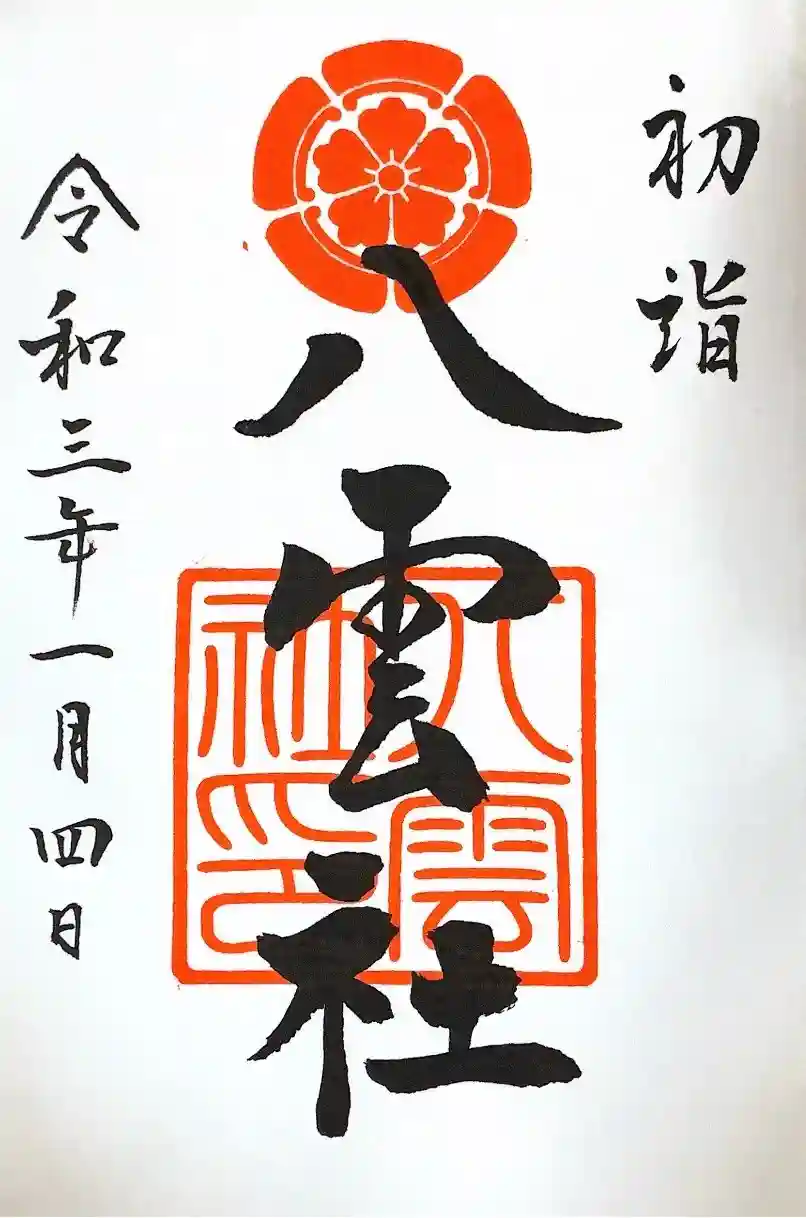 初詣
八雲社
八雲社印
令和三年一月四日